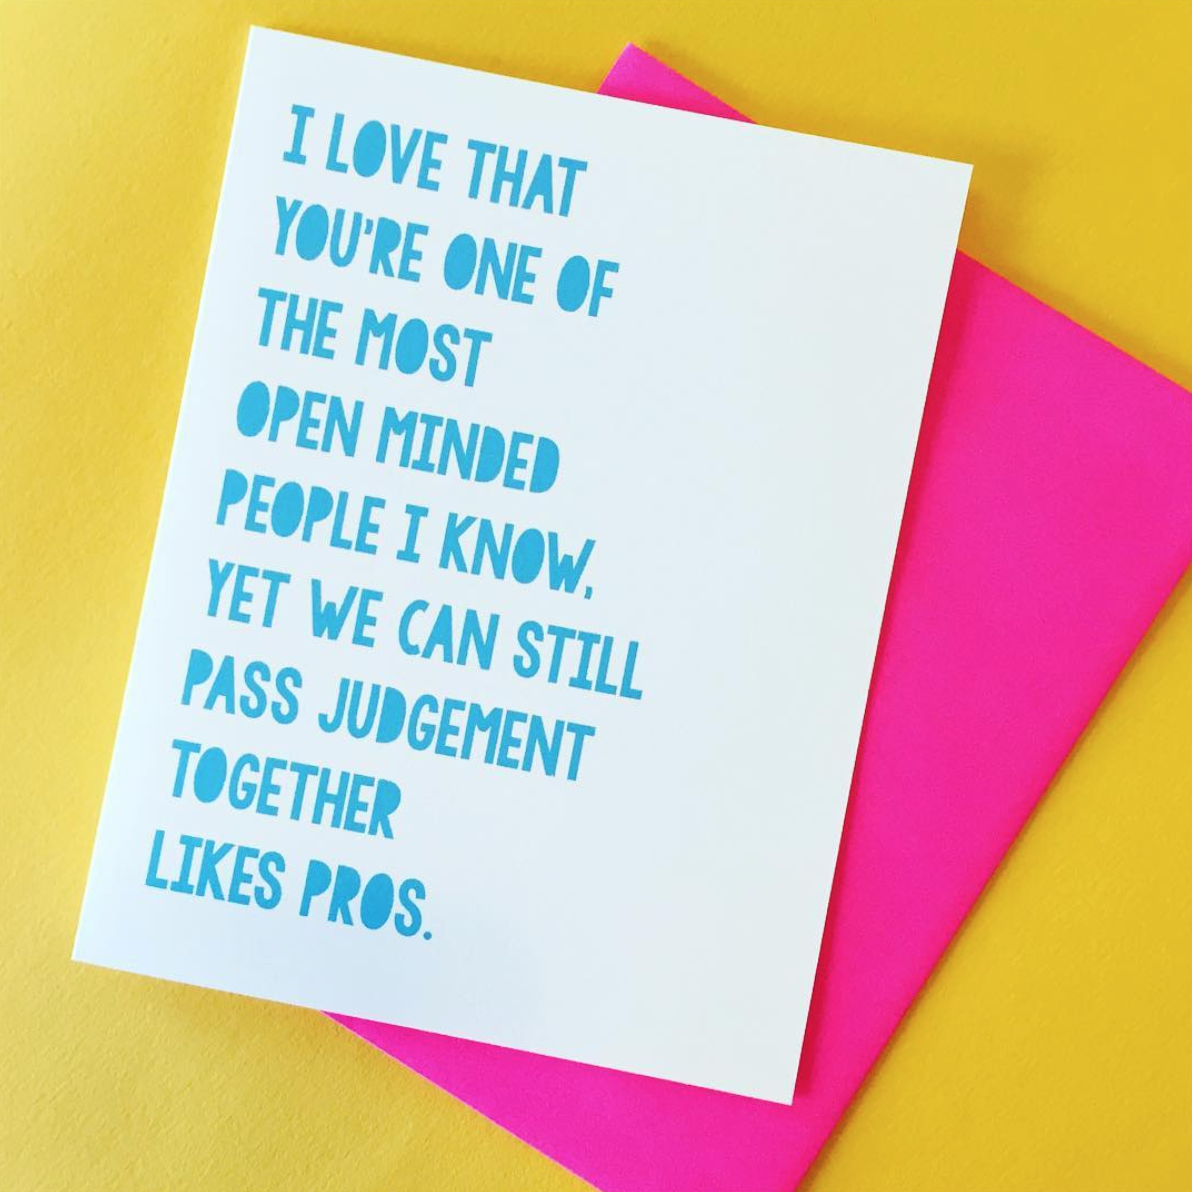 I LOVE THAT
YOU'RE ONE OF
THE MOST
OPEN MINDED
PEOPLE I KNOW,
YET WE CAN STILL
PASS JUDGEMENT
TOGETHER
LIKES PROS.